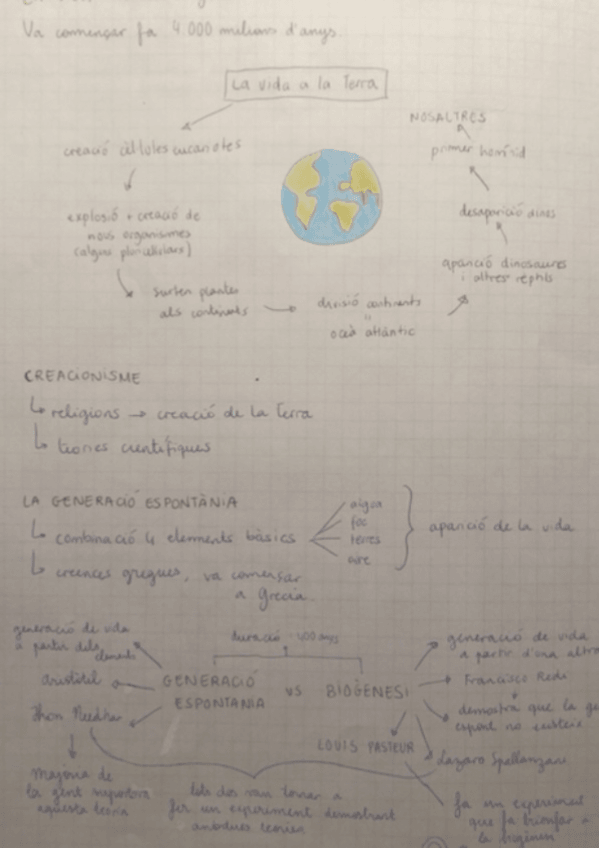 Va començar fa 4.000 milions d'anys.
La vida a la Terra
creació cèl·lules eucariotes
explosió + creació de
nous organismes
(alguns pluricel·lulars)
surten plantes
als continents
divisió continents
=
oceà atlàntic
aparició dinosaures
i altres rèptils
desaparició dinos
primer homínid
NOSALTRES
CREACIONISME
religions → creació de la Terra
teories científiques
LA GENERACIÓ ESPONTÀNIA
combinació 4 elements bàsics
aigua
foc
terres
aire
aparició de la vida
creences gregues, va comensar
a Grècia
generació de vida
a partir dels
elements
aristòtil
Jhon Needhar
majoria de
la gent suportava
aquesta teoria
duració
GENERACIÓ
ESPONTANIA
VS
BIOGÈNESI
LOUIS PASTEUR
generació de vida
a partir d'una altra
Francisco Redi
demostra que la
espont no existeix
Lazaro Spallanzani
fa un experiment
que fa triomfar a
la
tots dos van tornar a
fer un experiment demostrant
ambdues teories